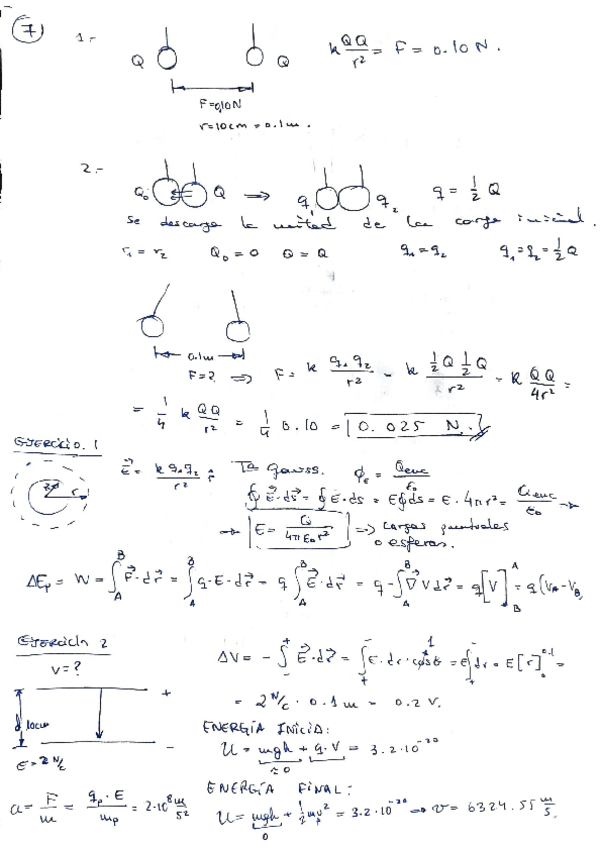 7
1.-
Q Q k QQ/r² = F = 0.10 N.
F=0,10N
r=10cm = 0.1m.
2.-
Q₀ Q ⇒ q₁ q₂ q = 1/2 Q
Se descarga la mitad de la carga inicial.
r₁ = r₂ Q₀ = 0 Q = Q q₁ = q₂ q₁ = q₂ = 1/2 Q
0.1m
F=? ⇒ F = k q₁ q₂/r² = k 1/2 Q 1/2 Q/r² = k QQ/4r² =
= 1/4 k QQ/r² = 1/4 0.10 = 0.025 N.
EJERCICIO. 1
r
E⃗ = k q₁ q₂/r² r̂ Tª gauss. ϕE = Qenc/ε₀
∮ E⃗·ds⃗ = ∮ E·ds = E∮ds = E·4πr² = Qenc/ε₀ →
→ E = Q/4πε₀r² ⇒ cargas puntuales
o esferas.
ΔEp = W = ∫ᴬᴮ F⃗·dr⃗ = ∫ᴬᴮ q·E·dr⃗ = q ∫ᴬᴮ E⃗·dr⃗ = q·-∫ᴬᴮ ∇⃗ V dr⃗ = q[V]ᴬ_B = q(VA-VB)
EJERCICIO 2
v=?
+
d 10cm
-
E=2 N/C
ΔV = -∫ E⃗·dr⃗ = ∫ E·dr·cosθ 1 = E∫ dr = E[r]₀^0.1 =
= 2 N/C · 0.1 m = 0.2 V.
ENERGÍA INICIAL:
U = mgh + q·V = 3.2·10⁻²⁰
≈0
a = F/m = qp·E/mp = 2·10⁸ m/s²
ENERGÍA FINAL:
U = mgh + 1/2 mp v² = 3.2·10⁻²⁰ ⇒ v = 6324.55 m/s.
0